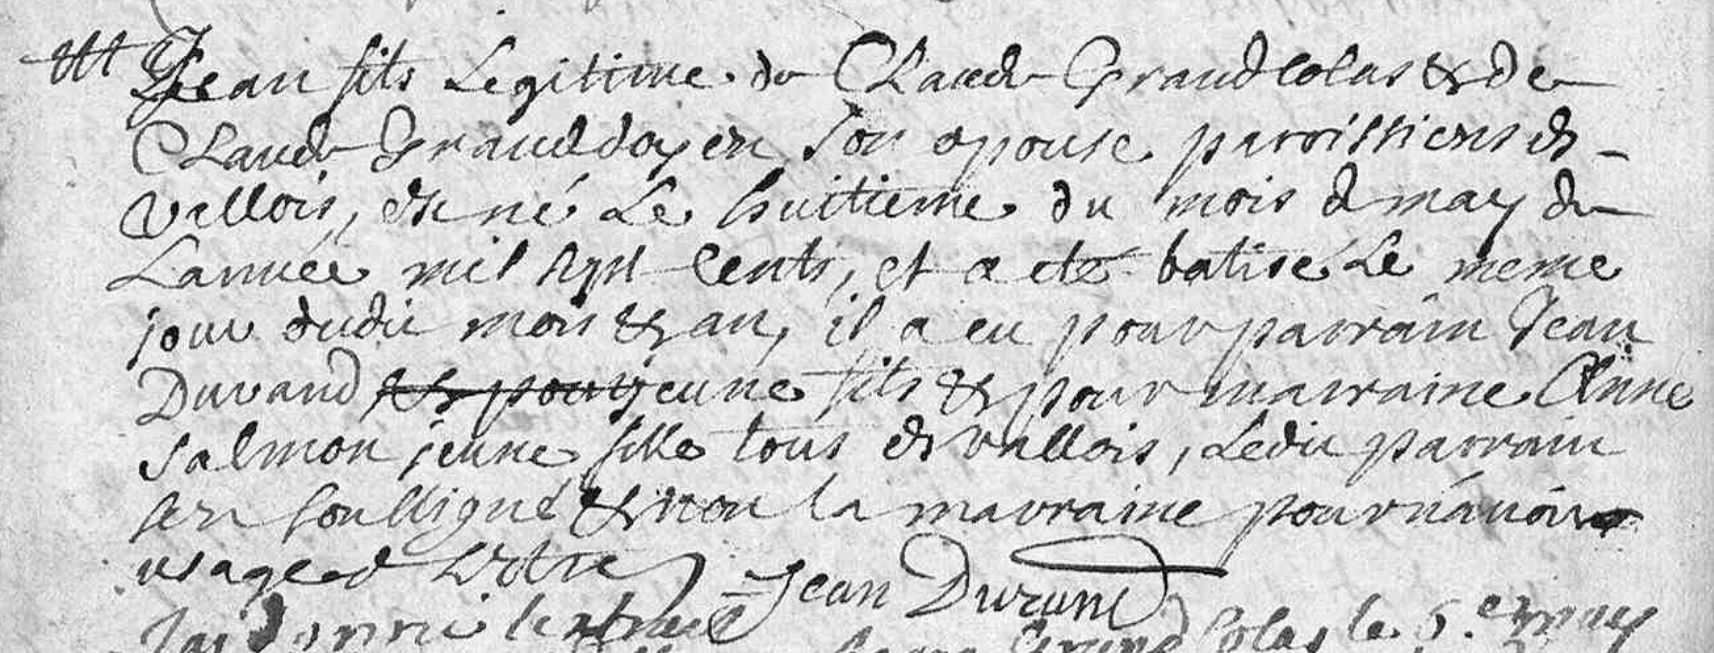 Jean fils Legitime de Claude Grandcolas & de
Claude Granddoyen son epouse parroissiens de
vallois, est né Le huitieme du mois de may de
Lannée mil sept cents, et a eté batisé Le meme
jour dudit mois & an, il a eu pour parrain Jean
Durand & pour jeune fils & pour marraine Anne
Salmon jeune fille tous de vallois, Ledit parrain
s'est soussigné & non la marraine pour n'avoir
usage de lettre Jean Durand
J'ai donné lextrait Grand Colas le 6.e may